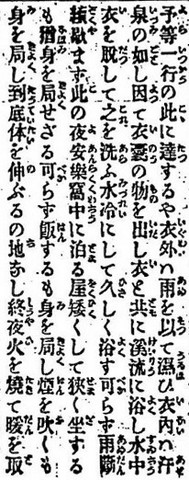 予等一行の此に達するや衣外ハ雨を以て濕ひ衣內ハ汗
泉の如し因て衣囊の物を出し衣と共に溪流に浴し水中
衣を脫して之を洗ふ水冷にして久しく浴す可らず雨霽
猶歇まず此の夜安樂窩中に泊る屋矮くして狹く坐する
も猶身を局せざる可らず飯するも身を局し煙を吹くも
身を局し到底体を伸ぶるの地なし終夜火を燒て暖を取